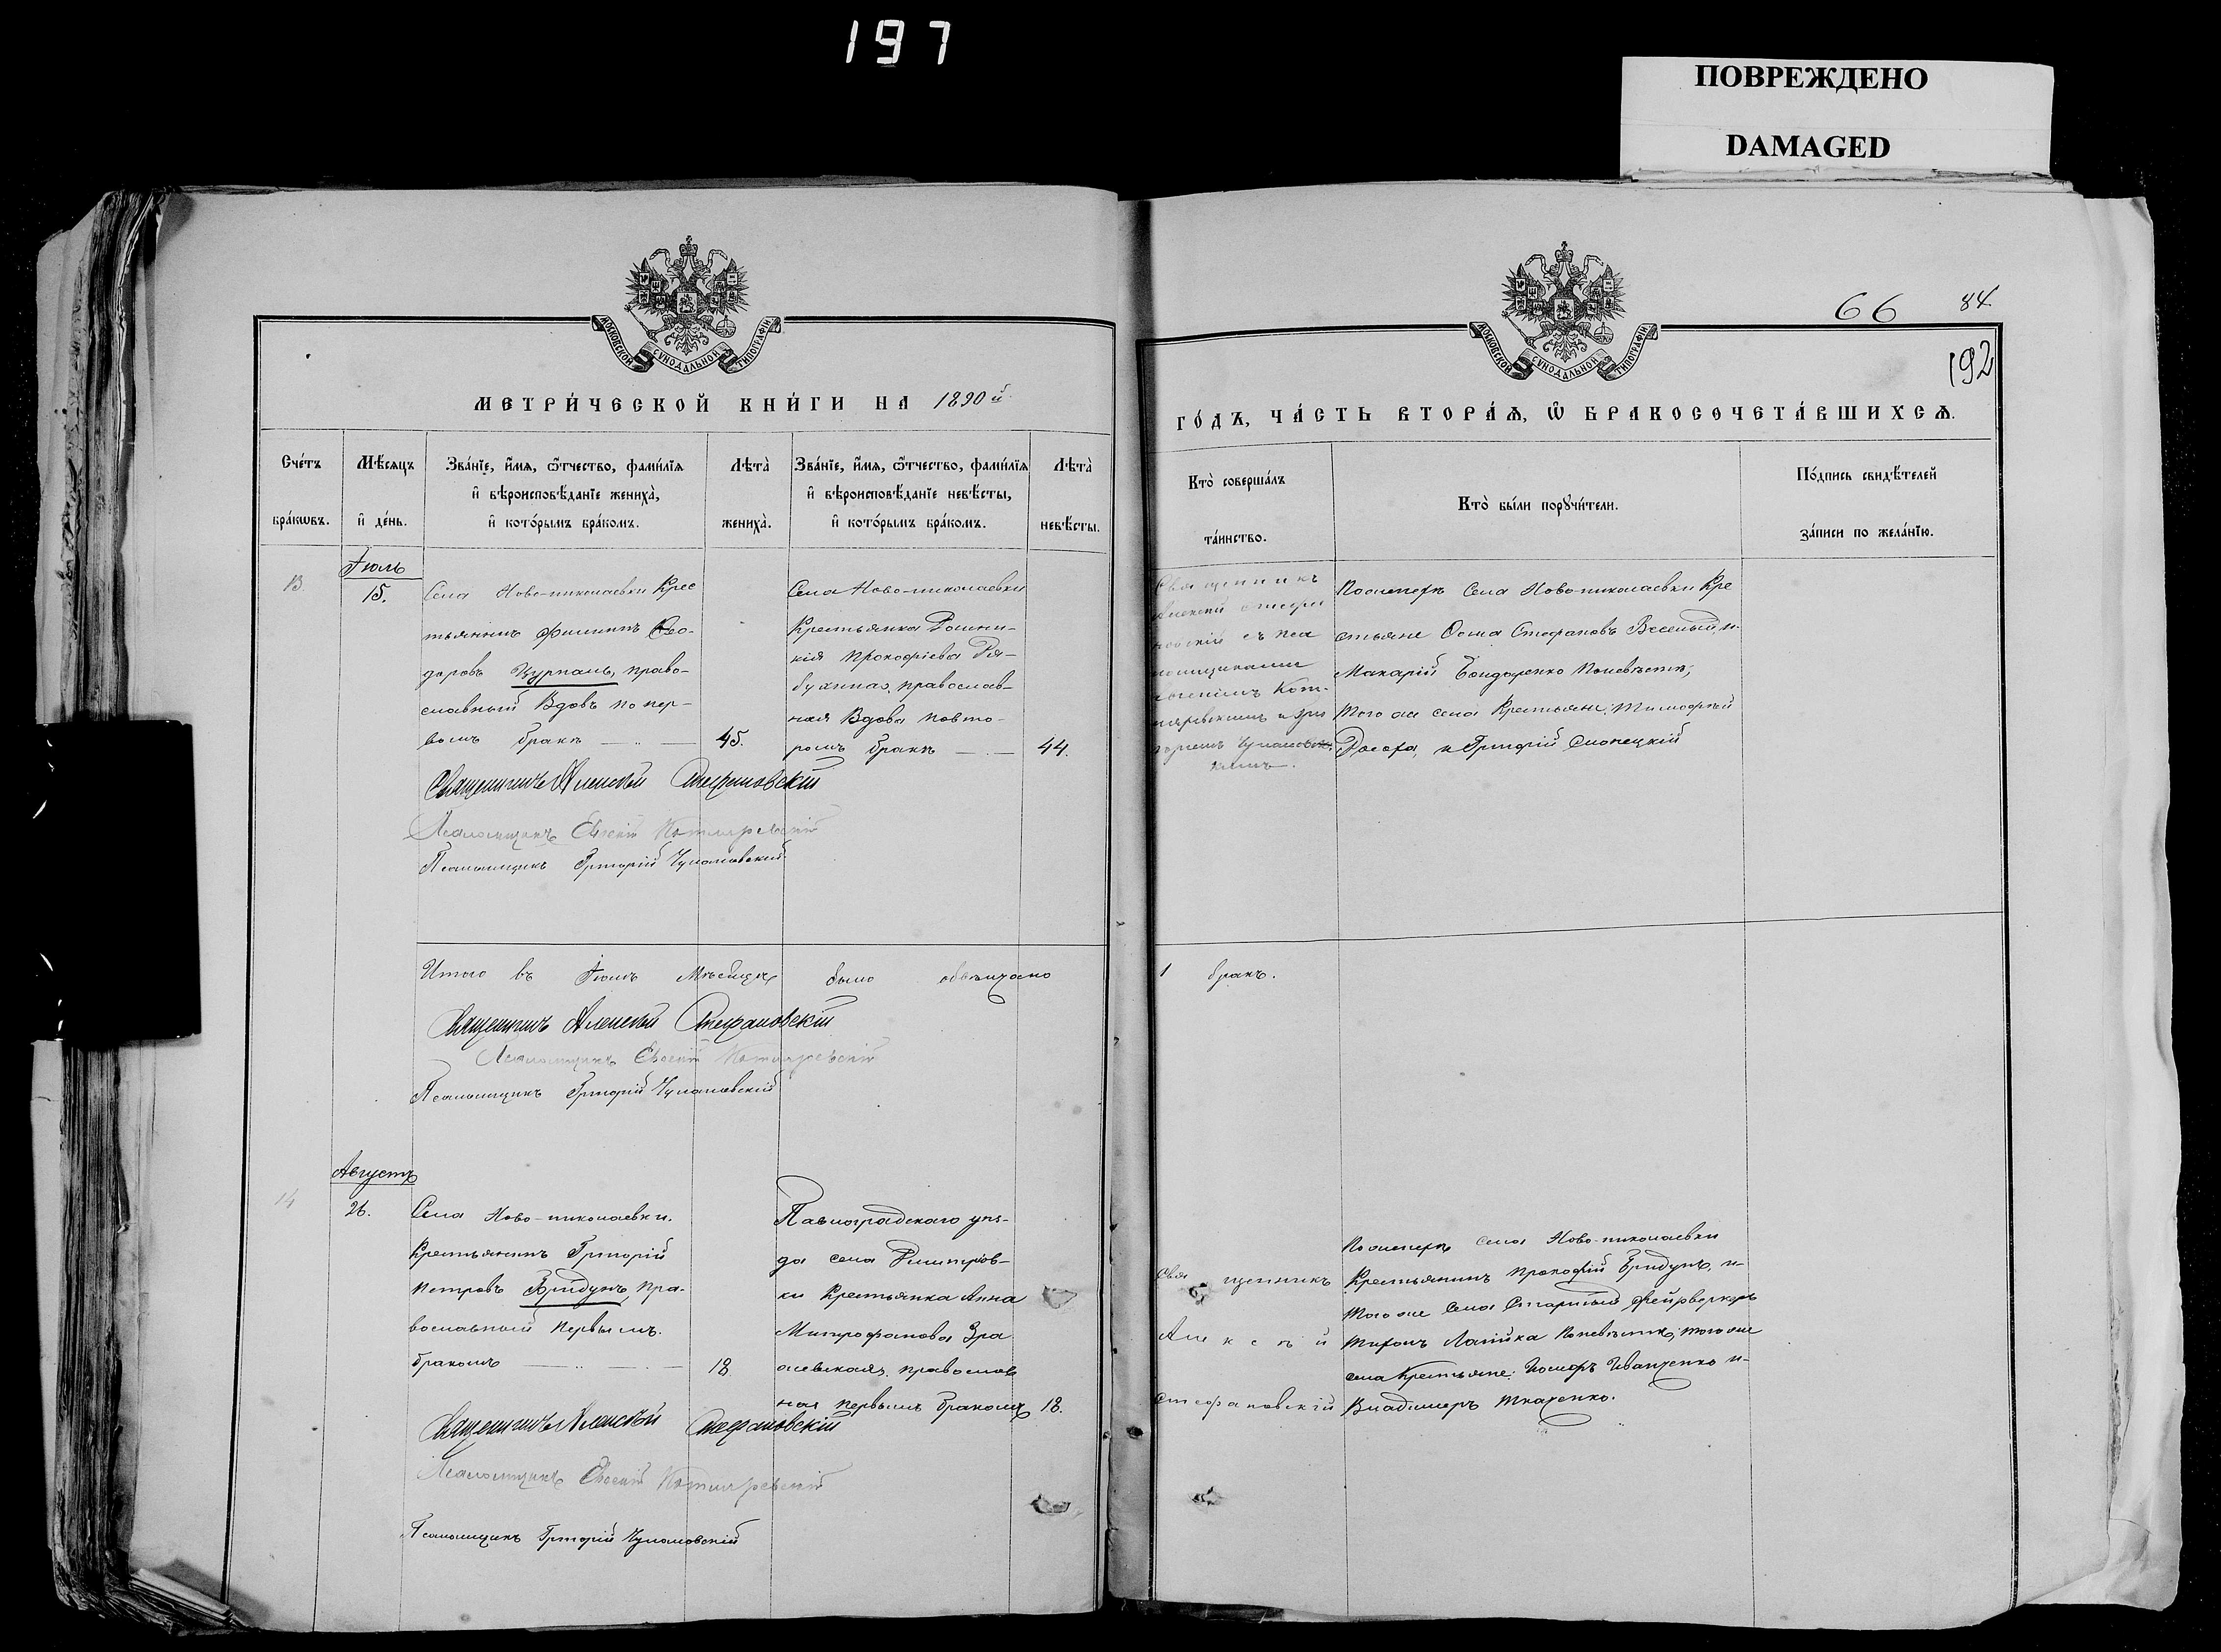 197
ПОВРЕЖДЕНО
DAMAGED
МОСКОВСКОЙ СУНОДАЛЬНОЙ ТИПОГРАФІИ
МОСКОВСКОЙ СУНОДАЛЬНОЙ ТИПОГРАФІИ
66 84
192
МЕТРИ́ЧЕСКОЙ КНИ́ГИ НА 1890й
ГО́ДЪ, ЧА́СТЬ ВТОРА́Я, Ѡ БРАКОСОЧЕТА́ВШИХСЯ.
Сче́тъ
бра́кѡвъ.
Мѣ́сяцъ
и де́нь.
Зва́нїе, и́мя, ѻ́тчество, фами́лїя
и вѣроисповѣ́данїе жениха̀,
и кото́рымъ бра́комъ.
Лѣта̀
жениха̀.
Зва́нїе, и́мя, ѻ́тчество, фами́лїя
и вѣроисповѣ́данїе невѣ́сты,
и кото́рымъ бра́комъ.
Лѣта̀
невѣ́сты.
Кто̀ соверша́лъ
та́инство.
Кто̀ бы́ли порꙋчи́тели.
По́дпись свидѣ́телей
за́писи по жела́нїю.
13
Іюль
15.
Села Ново-николаевки Крес
тьянинъ Филиппъ Ѳео-
доровъ Цурпаль, право-
славный Вдовъ по пер-
вомъ бракѣ
45.
Села Ново-николаевки
Крестьянка
Прокофіева
православ-
ная Вдова повто-
ромъ бракѣ
44.
Священникъ
Алексѣй Стефа
новскій съ пса
ломщиками
Евгеніемъ Кот-
ляревскимъ и Гри
горіемъ
кимъ.
По женихѣ Села Ново-николаевки Кре
стьяне Ѳома Стефановъ Веселый, и
Макарій Бондаренко По невѣстѣ,
Того же села Крестьяне: Тимофѣй
и Григорій
Священникъ Алексѣй Стефановскій
Псаломщикъ Евгеній Котляревскій
Псаломщикъ Григорій
Итого въ Іюлѣ Мѣсяцѣ было обвѣнчано
1 бракъ.
Священникъ Алексѣй Стефановскій
Псаломщикъ Евгеній Котляревскій
Псаломщикъ Григорій
14
Августъ
26.
Села Ново-николаевки.
Крестьянинъ Григорій
Петровъ Бридунъ, пра-
вославный Первымъ.
бракомъ
18.
Павлоградскаго уѣз-
да села Дмитров-
ки Крестьянка Анна
Митрофанова
православ
ная первымъ бракомъ
18.
Священникъ
Алексѣй
Стефановскій
По женихѣ села Ново-николаевки
Крестьянинъ Прокофій Бридунъ, и-
того же Села Старшый фейрверкеръ
Тихонъ По невѣстѣ; того же
села Крестьяне: Іосифъ Иванченко и-
Владимеръ Ткаченко.
Священникъ Алексѣй Стефановскій
Псаломщикъ Евгеній Котляревскій
Псаломщикъ Григорій